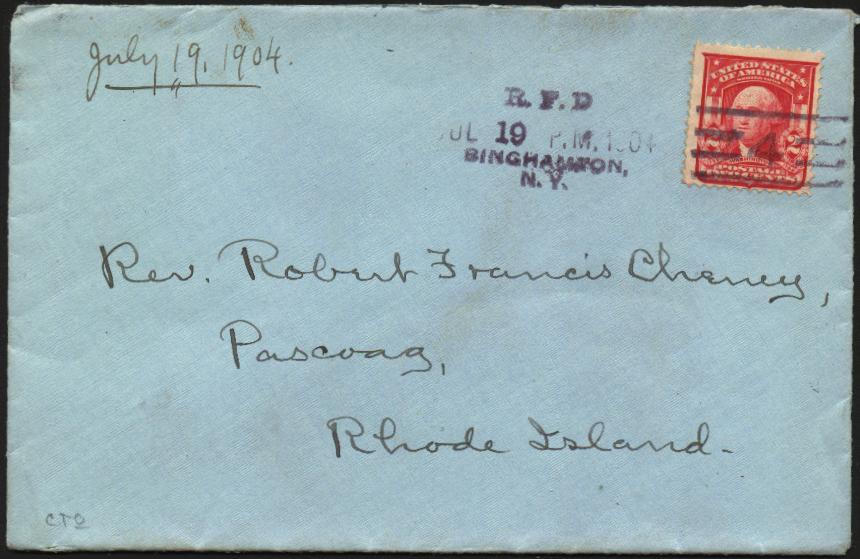 July 19, 1904.
R.F.D
JUL 19 P.M. 1904
BINGHAMTON,
N.Y.
UNITED STATES
OF AMERICA
2 4 2
POSTAGE
Rev. Robert Francis Cheney,
Pascoag,
Rhode Island.
CTO